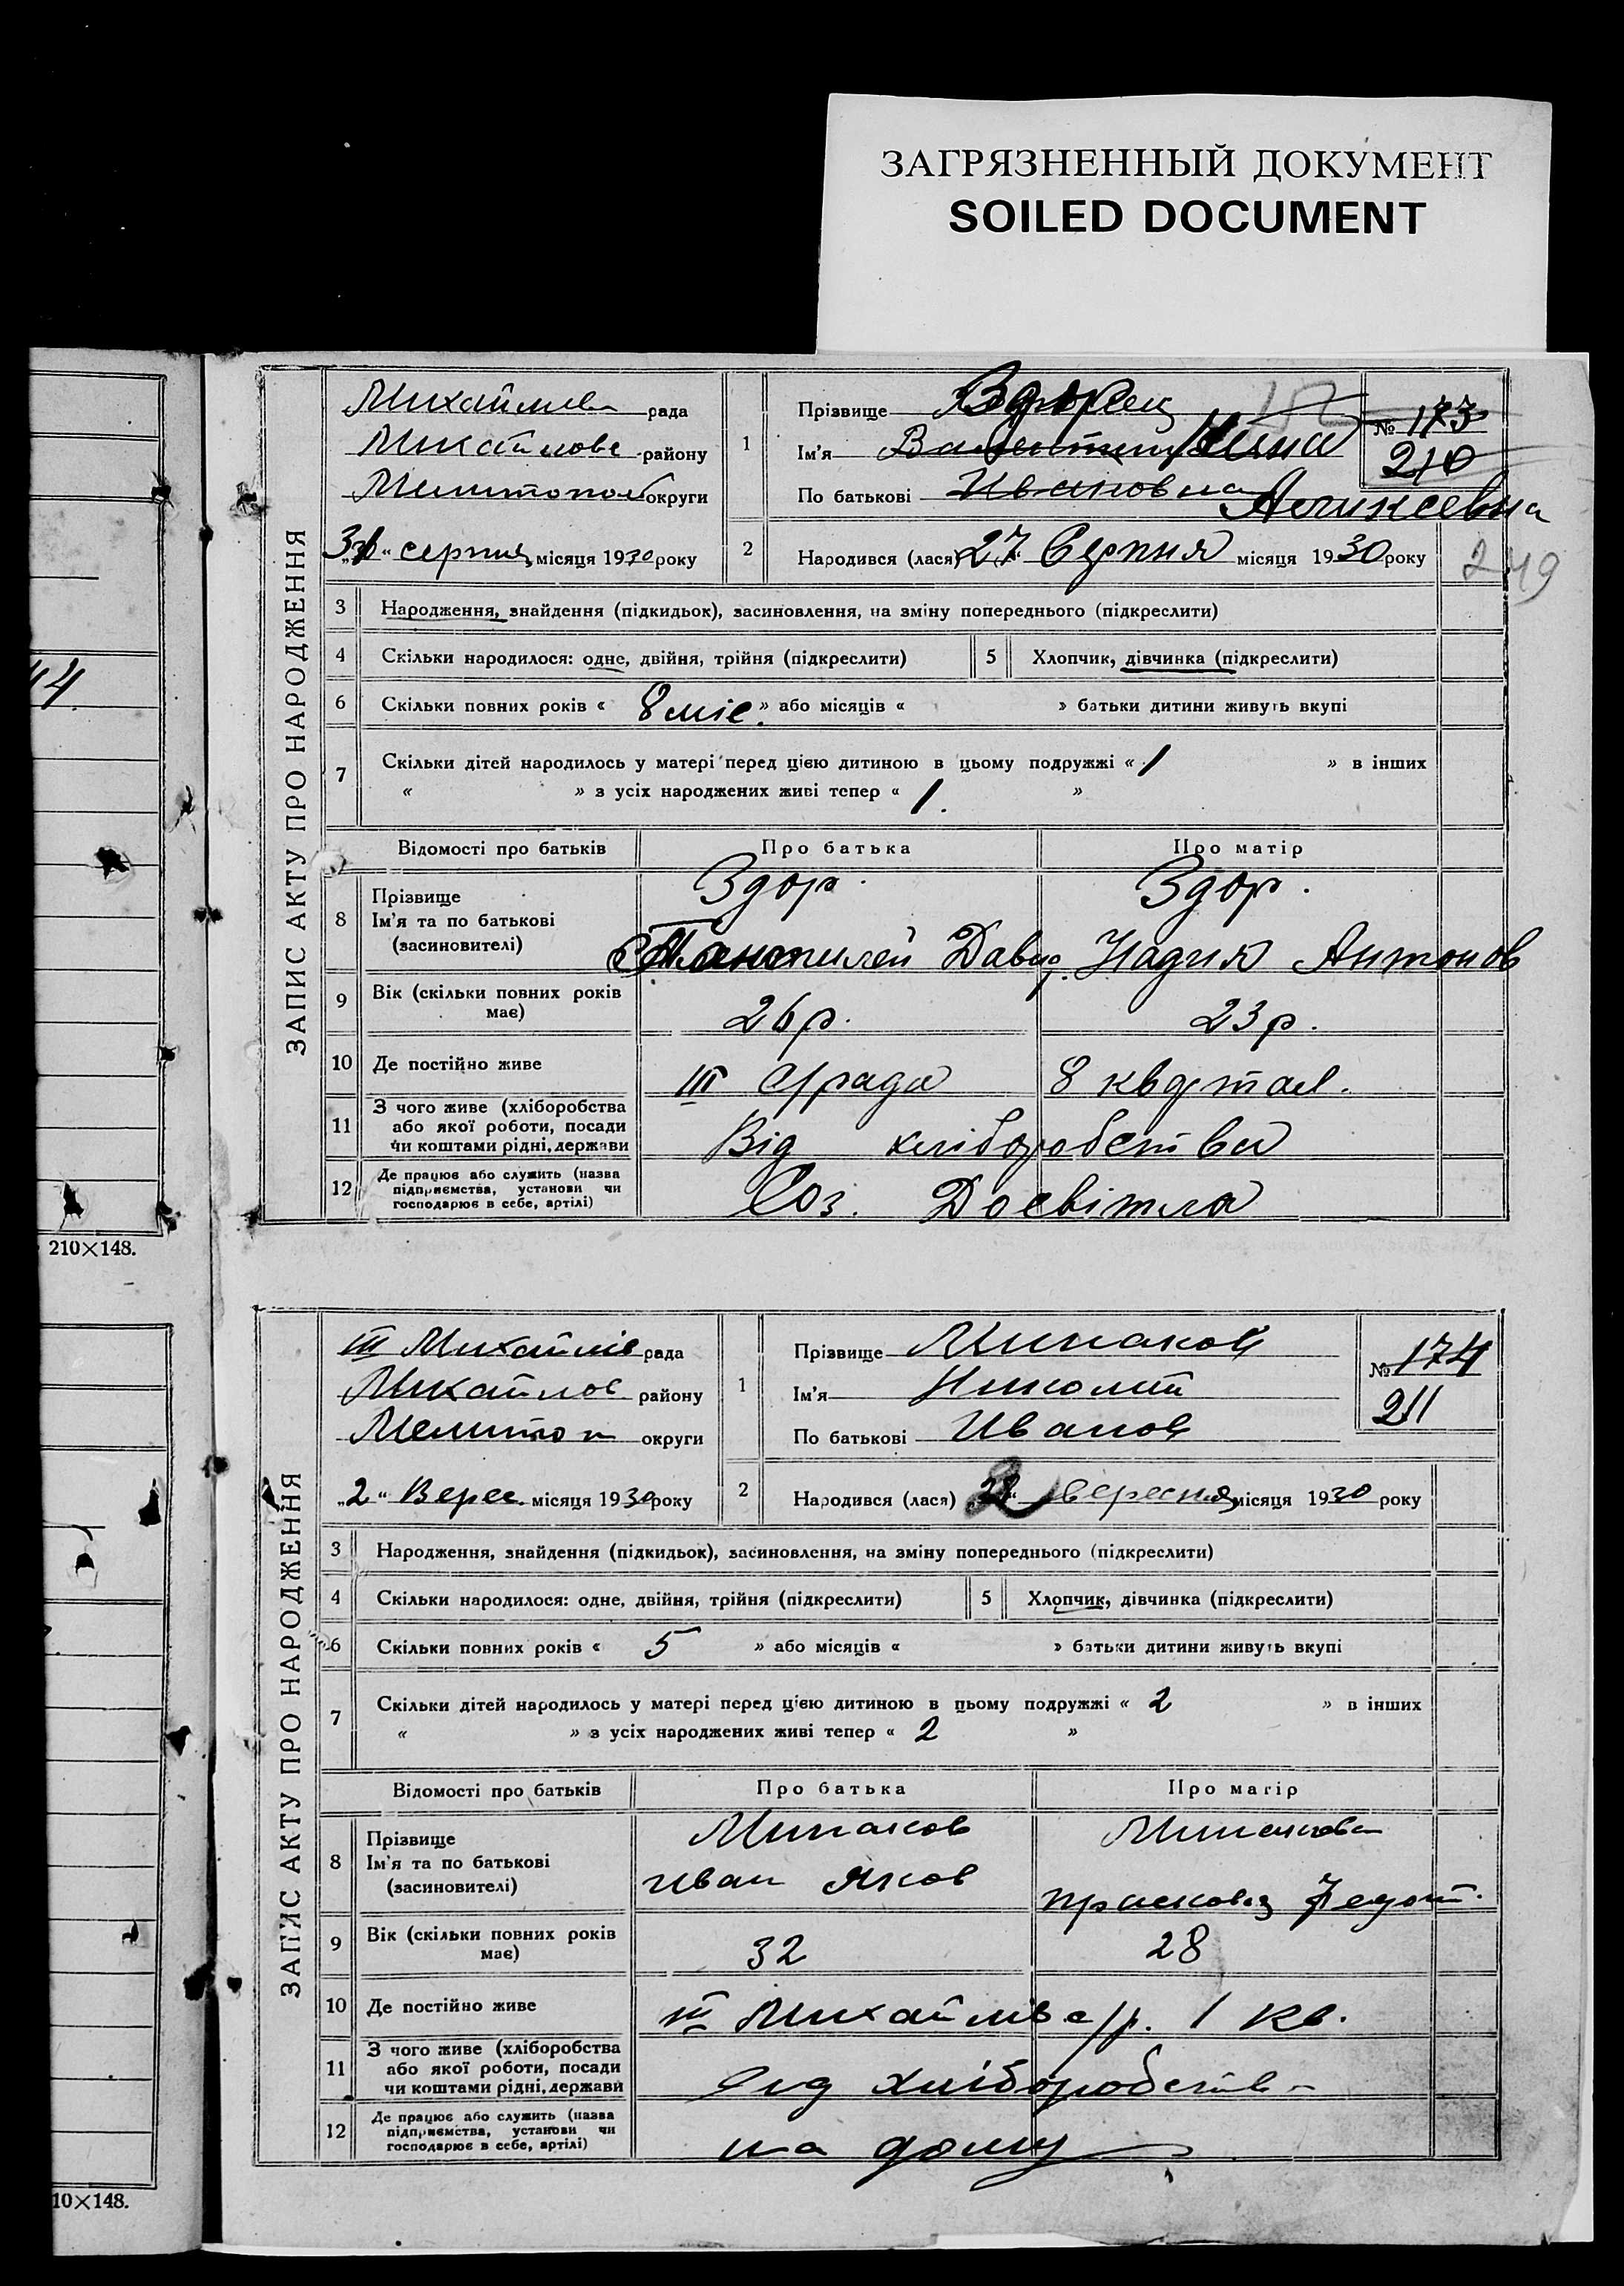 ЗАГРЯЗНЕННЫЙ ДОКУМЕНТ
SOILED DOCUMENT
ЗАПИС АКТУ ПРО НАРОДЖЕННЯ
рада
району
Мелитопол округи
серпня місяця 1930 року
1
Прізвище
Ім'я Нина
По батькові Ивановна
№ 173
210
2
Народився (лася) 27 Серпня місяця 1930 року
249
3 Народження, знайдення (підкидьок), засиновлення, на зміну попереднього (підкреслити)
4 Скільки народилося: одне, двійня, трійня (підкреслити)
5 Хлопчик, дівчинка (підкреслити)
6 Скільки повних років « 8 міс. » або місяців « » батьки дитини живуть вкупі
7 Скільки дітей народилось у матері перед цією дитиною в цьому подружжі « 1 » в інших
« » з усіх народжених живі тепер « 1. »
Відомості про батьків Про батька Про матір
8 Прізвище
Ім'я та по батькові
(засиновителі)
Здор. Здор.
Давид. Надия Антонов
9 Вік (скільки повних років
має)
26 р. 23 р.
10 Де постійно живе
III с/рада 8 квартал.
11 З чого живе (хліборобства
або якої роботи, посади
чи коштами рідні, держави
Від хліборобства
12 Де працює або служить (назва
підприємства, установи чи
господарює в себе, артілі)
Соз. Досвітла
210×148.
ЗАПИС АКТУ ПРО НАРОДЖЕННЯ
III Михайлів рада
Михайлов району
Мелитоп округи
„2“ Верес. місяця 1930 року
1
Прізвище Минаков
Ім'я Николай
По батькові Иванов
№ 174
211
2
Народився (лася) вересня місяця 1930 року
3 Народження, знайдення (підкидьок), засиновлення, на зміну попереднього (підкреслити)
4 Скільки народилося: одне, двійня, трійня (підкреслити)
5 Хлопчик, дівчинка (підкреслити)
6 Скільки повних років « 5 » або місяців « » батьки дитини живуть вкупі
7 Скільки дітей народилось у матері перед цією дитиною в цьому подружжі « 2 » в інших
« » з усіх народжених живі тепер « 2 »
Відомості про батьків Про батька Про матір
8 Прізвище
Ім'я та по батькові
(засиновителі)
Минаков Минакова
Иван Яков Федот.
9 Вік (скільки повних років
має)
32 28
10 Де постійно живе
III Михайлів с/р. 1 кв.
11 З чого живе (хліборобства
або якої роботи, посади
чи коштами рідні, держави
хліборобства
12 Де працює або служить (назва
підприємства, установи чи
господарює в себе, артілі)
на дому
10×148.